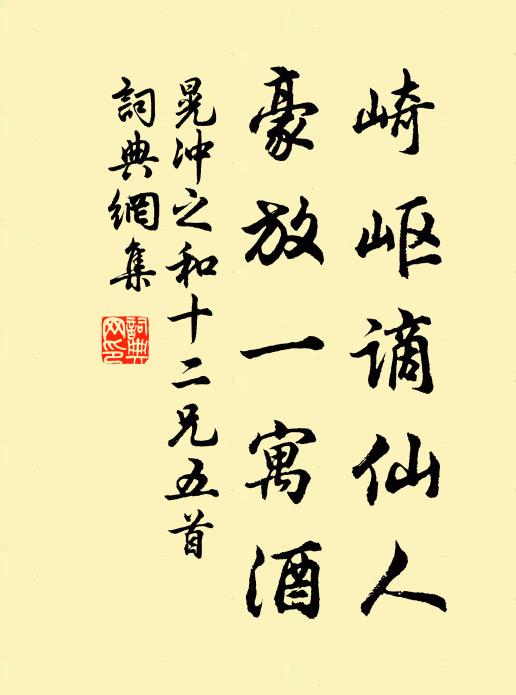 崎岖谪仙人
豪放一寓酒
晁冲之和十二兄五首
詞典網集
詞典网印